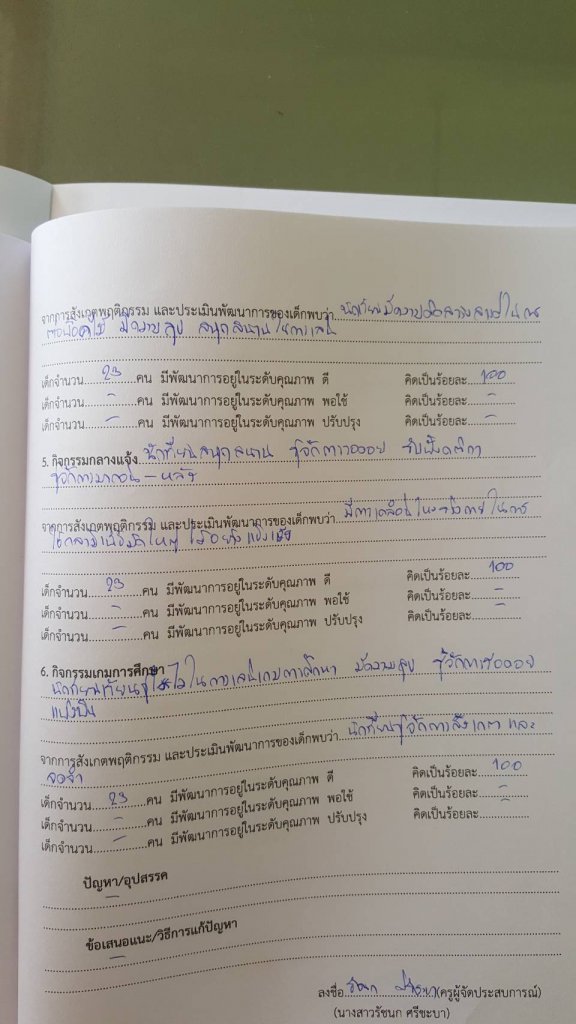 จากการสังเกตพฤติกรรม และประเมินพัฒนาการของเด็กพบว่า นักเรียนมีความคิดสร้างสรรค์ในการ
ต่อบล็อคไม้ มีความสุข สนุกสนานในการเล่น
เด็กจำนวน 23 คน มีพัฒนาการอยู่ในระดับคุณภาพ ดี คิดเป็นร้อยละ 100
เด็กจำนวน - คน มีพัฒนาการอยู่ในระดับคุณภาพ พอใช้ คิดเป็นร้อยละ -
เด็กจำนวน - คน มีพัฒนาการอยู่ในระดับคุณภาพ ปรับปรุง คิดเป็นร้อยละ -
5. กิจกรรมกลางแจ้ง นักเรียนสนุกสนาน รู้จักการรอคอย รับฟังกติกา
รู้จักการมาก่อน - หลัง
จากการสังเกตพฤติกรรม และประเมินพัฒนาการของเด็กพบว่า มีการเคลื่อนไหวร่างกายในการ
ใช้กล้ามเนื้อมัดใหญ่ ได้อย่างแข็งแรง
เด็กจำนวน 23 คน มีพัฒนาการอยู่ในระดับคุณภาพ ดี คิดเป็นร้อยละ 100
เด็กจำนวน - คน มีพัฒนาการอยู่ในระดับคุณภาพ พอใช้ คิดเป็นร้อยละ -
เด็กจำนวน - คน มีพัฒนาการอยู่ในระดับคุณภาพ ปรับปรุง คิดเป็นร้อยละ -
6. กิจกรรมเกมการศึกษา
นักเรียนเรียนรู้ในการเล่นเกมการศึกษา มีความสุข รู้จักการรอคอย
แบ่งปัน
จากการสังเกตพฤติกรรม และประเมินพัฒนาการของเด็กพบว่า นักเรียนรู้จักการสังเกต และ
จดจำ
เด็กจำนวน 23 คน มีพัฒนาการอยู่ในระดับคุณภาพ ดี คิดเป็นร้อยละ 100
เด็กจำนวน - คน มีพัฒนาการอยู่ในระดับคุณภาพ พอใช้ คิดเป็นร้อยละ -
เด็กจำนวน - คน มีพัฒนาการอยู่ในระดับคุณภาพ ปรับปรุง คิดเป็นร้อยละ -
ปัญหา/อุปสรรค
-
ข้อเสนอแนะ/วิธีการแก้ปัญหา
-
ลงชื่อ รัชนก ศรีชะบา (ครูผู้จัดประสบการณ์)
(นางสาวรัชนก ศรีชะบา)